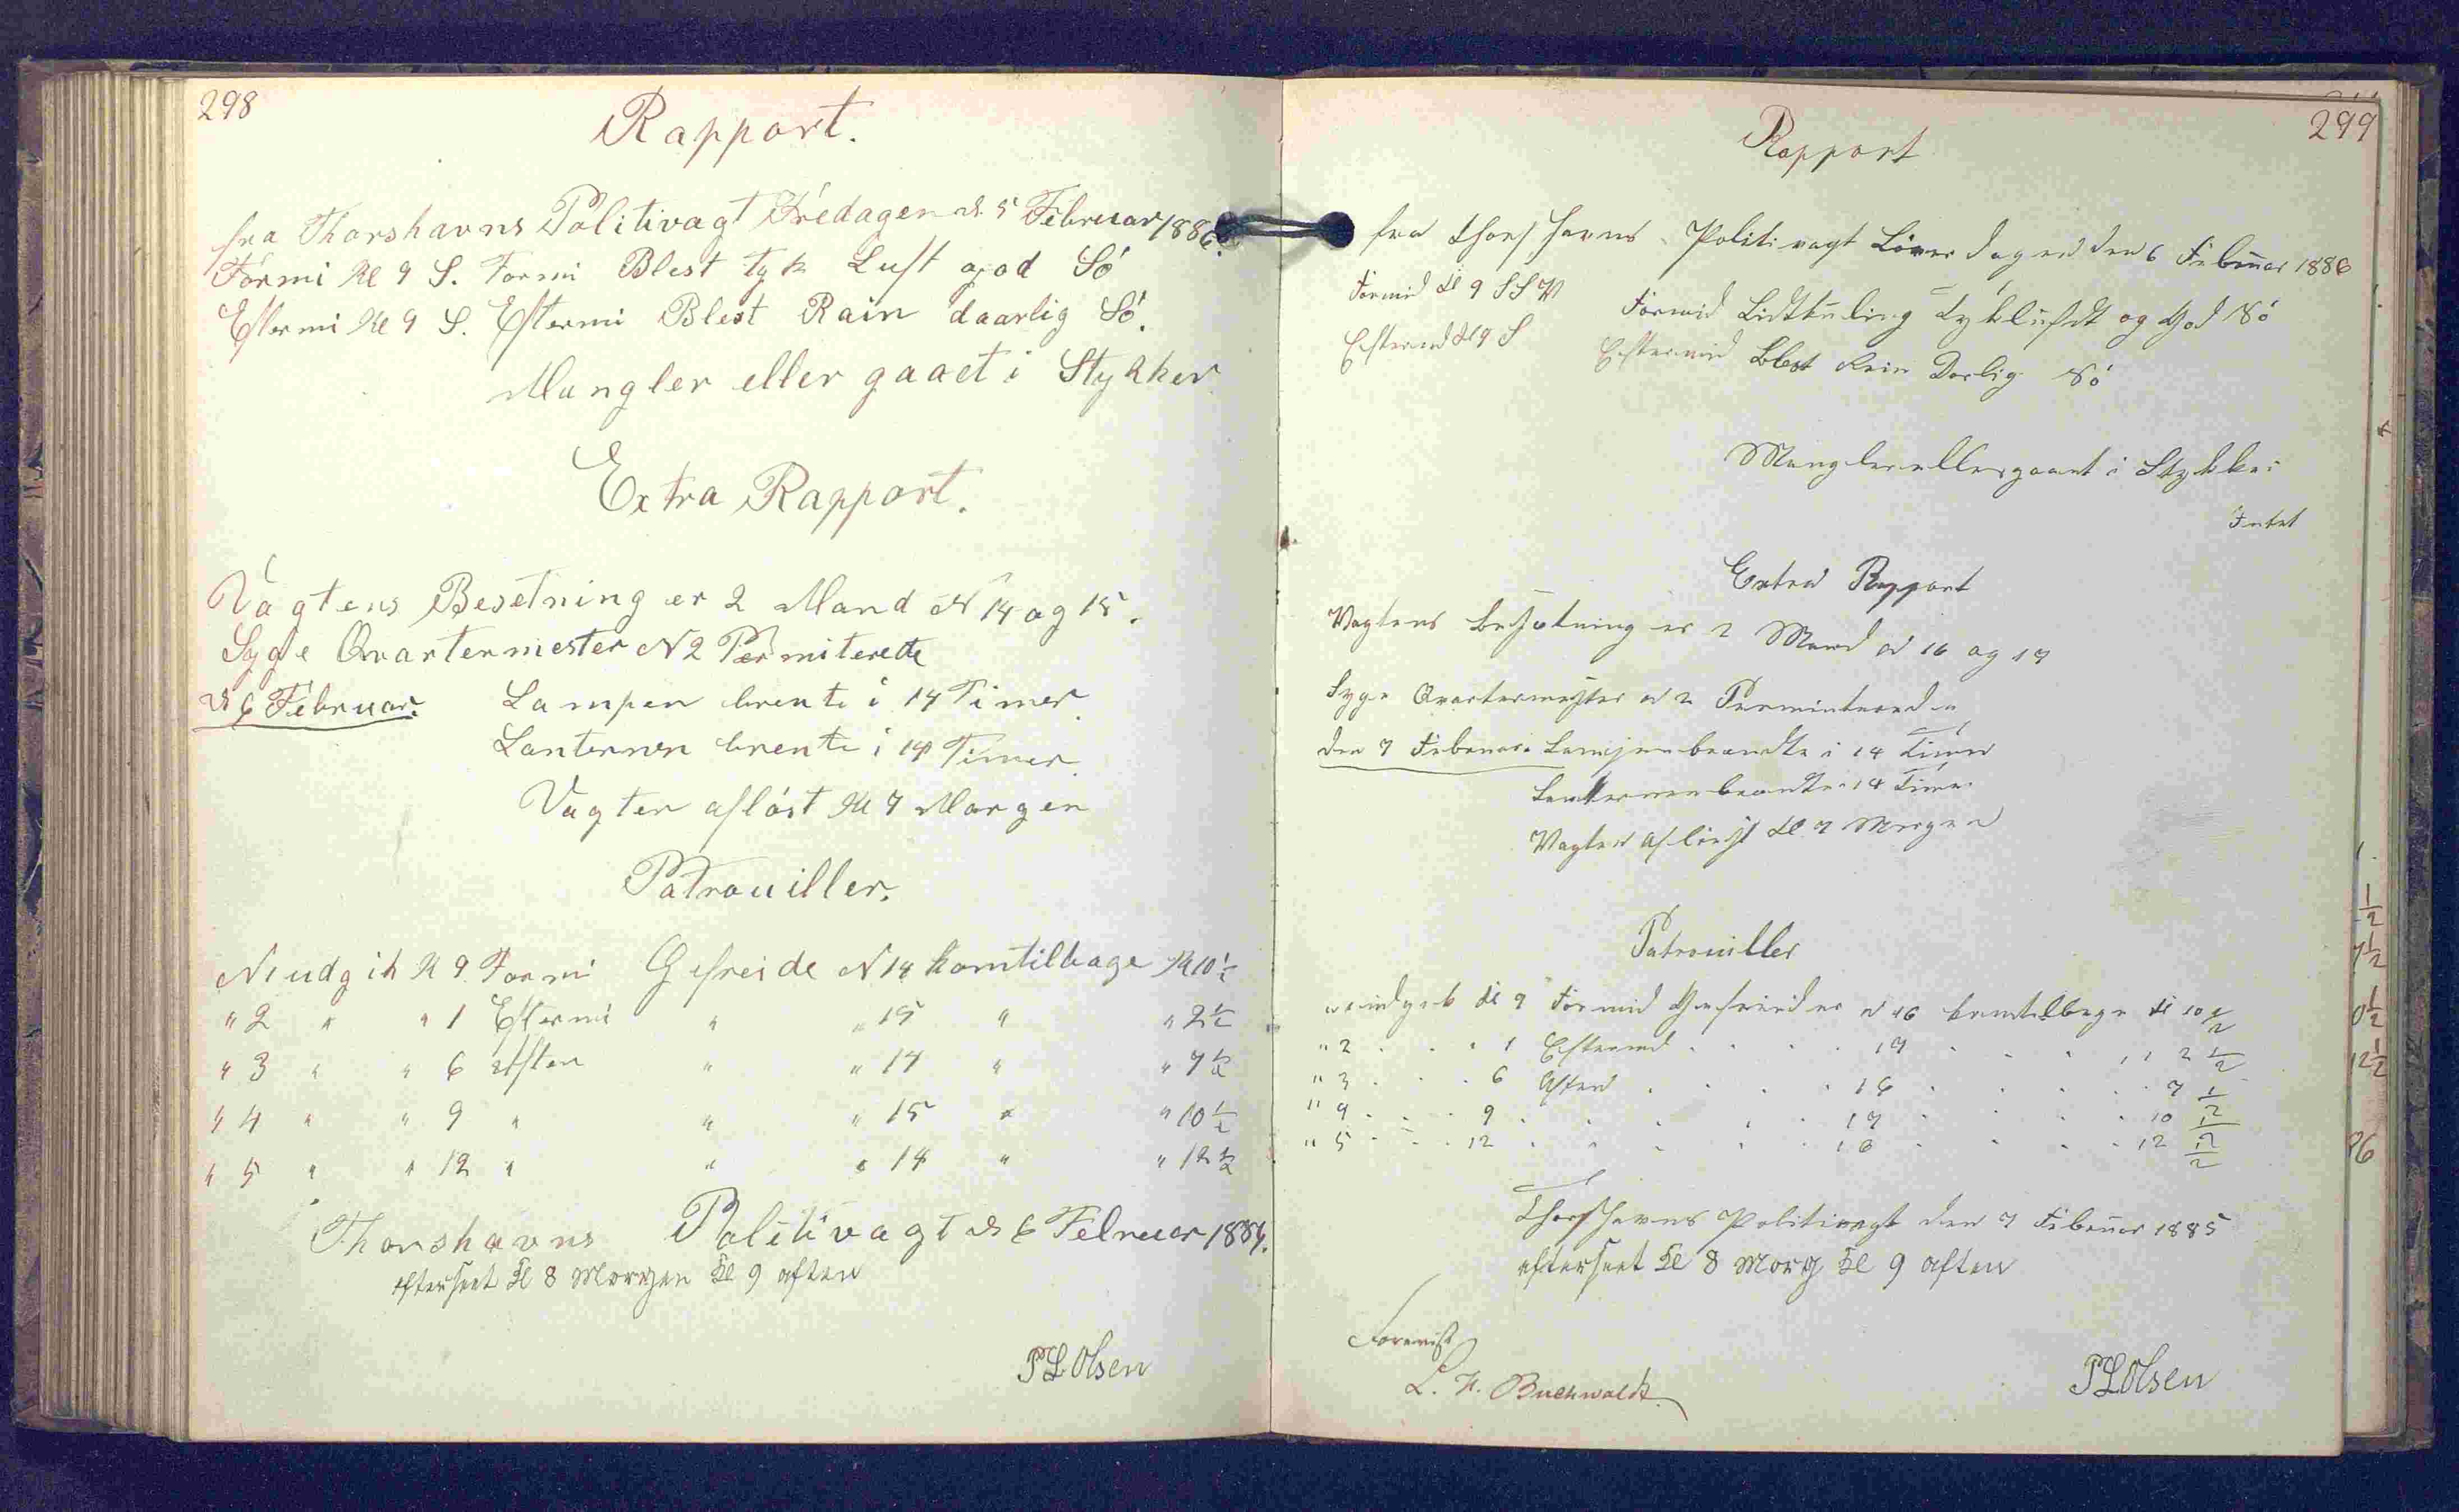 298
Rapport.
fra Thorshavns Politivagt Fredagen d. 5 Februar 1886.
Formi Kl 9 S. Formi Blest tyk Luft god Sö
Eftermi Kl 9 S. Eftermi Blest Rain daarlig Sö.
Mangler eller gaaet i Stykker
Extra Rapport.
Vagtens Besetning er 2 Mand N 14 og 15.
Syge Qvartermester N 2 Permiterede
d 6 Februar. Lampen brente i 14 Timer
Lanternen brente i 14 Timer
Vagten aflöst Kl 7 Morgen
Patrouiller.
N1 udgik Kl 9 Formi Gefreide N 14 kom tilbage Kl 10 1/2
" 2 " " 1 Eftermi " " 15 " " 2 1/2
" 3 " " 6 Aften " " 14 " " 7 1/2
" 4 " " 9 " " " 15 " " 10 1/2
" 5 " " 12 " " " 14 " " 12 1/2
Thorshavns Politivagt d 6 Februar 1886.
efterseet Kl 8 Morgen Kl 9 aften
PLOlsen
299
Rapport
fra Thorshavns Politivagt Löverdagen den 6 Februar 1886
Formid Kl 9 SSW Formid Lidtkuling Tykluft og God Sö
Eftermd Kl 9 S Eftermid Blest Rein Dorlig Sö
Mangler eller gaaet i Stykker
Intet
Extra Rapport
Vagtens Besætning er 2 Mand N 16 og 17
Syge Qvartermester N 2
den 7 Februar Lampen brendte i 14 Timer
Lanternen brendte i 14 Timer
Vagten Aflöst Kl 7 Morgen
Patrouiller
N 1 udgek Kl 9 Formid Gefreider N 16 komtilbage Kl 10 1/2
" 2 . . . 1 Eftermd . . . 17 . . . 2 1/2
" 3 . . . 6 Aften . . . 16 . . . 7 1/2
" 4 . . . 9 . . . . 17 . . . 10 1/2
" 5 . . . 12 . . . . 16 . . . 12 1/2
Thorshavns Politivagt den 7 Februar 1885
efterseet Kl 8 Morg Kl 9 aften
Forevist
L. H. Buchwaldt.
PLOlsen
1/2
7 1/2
0 1/2
12 1/2
86